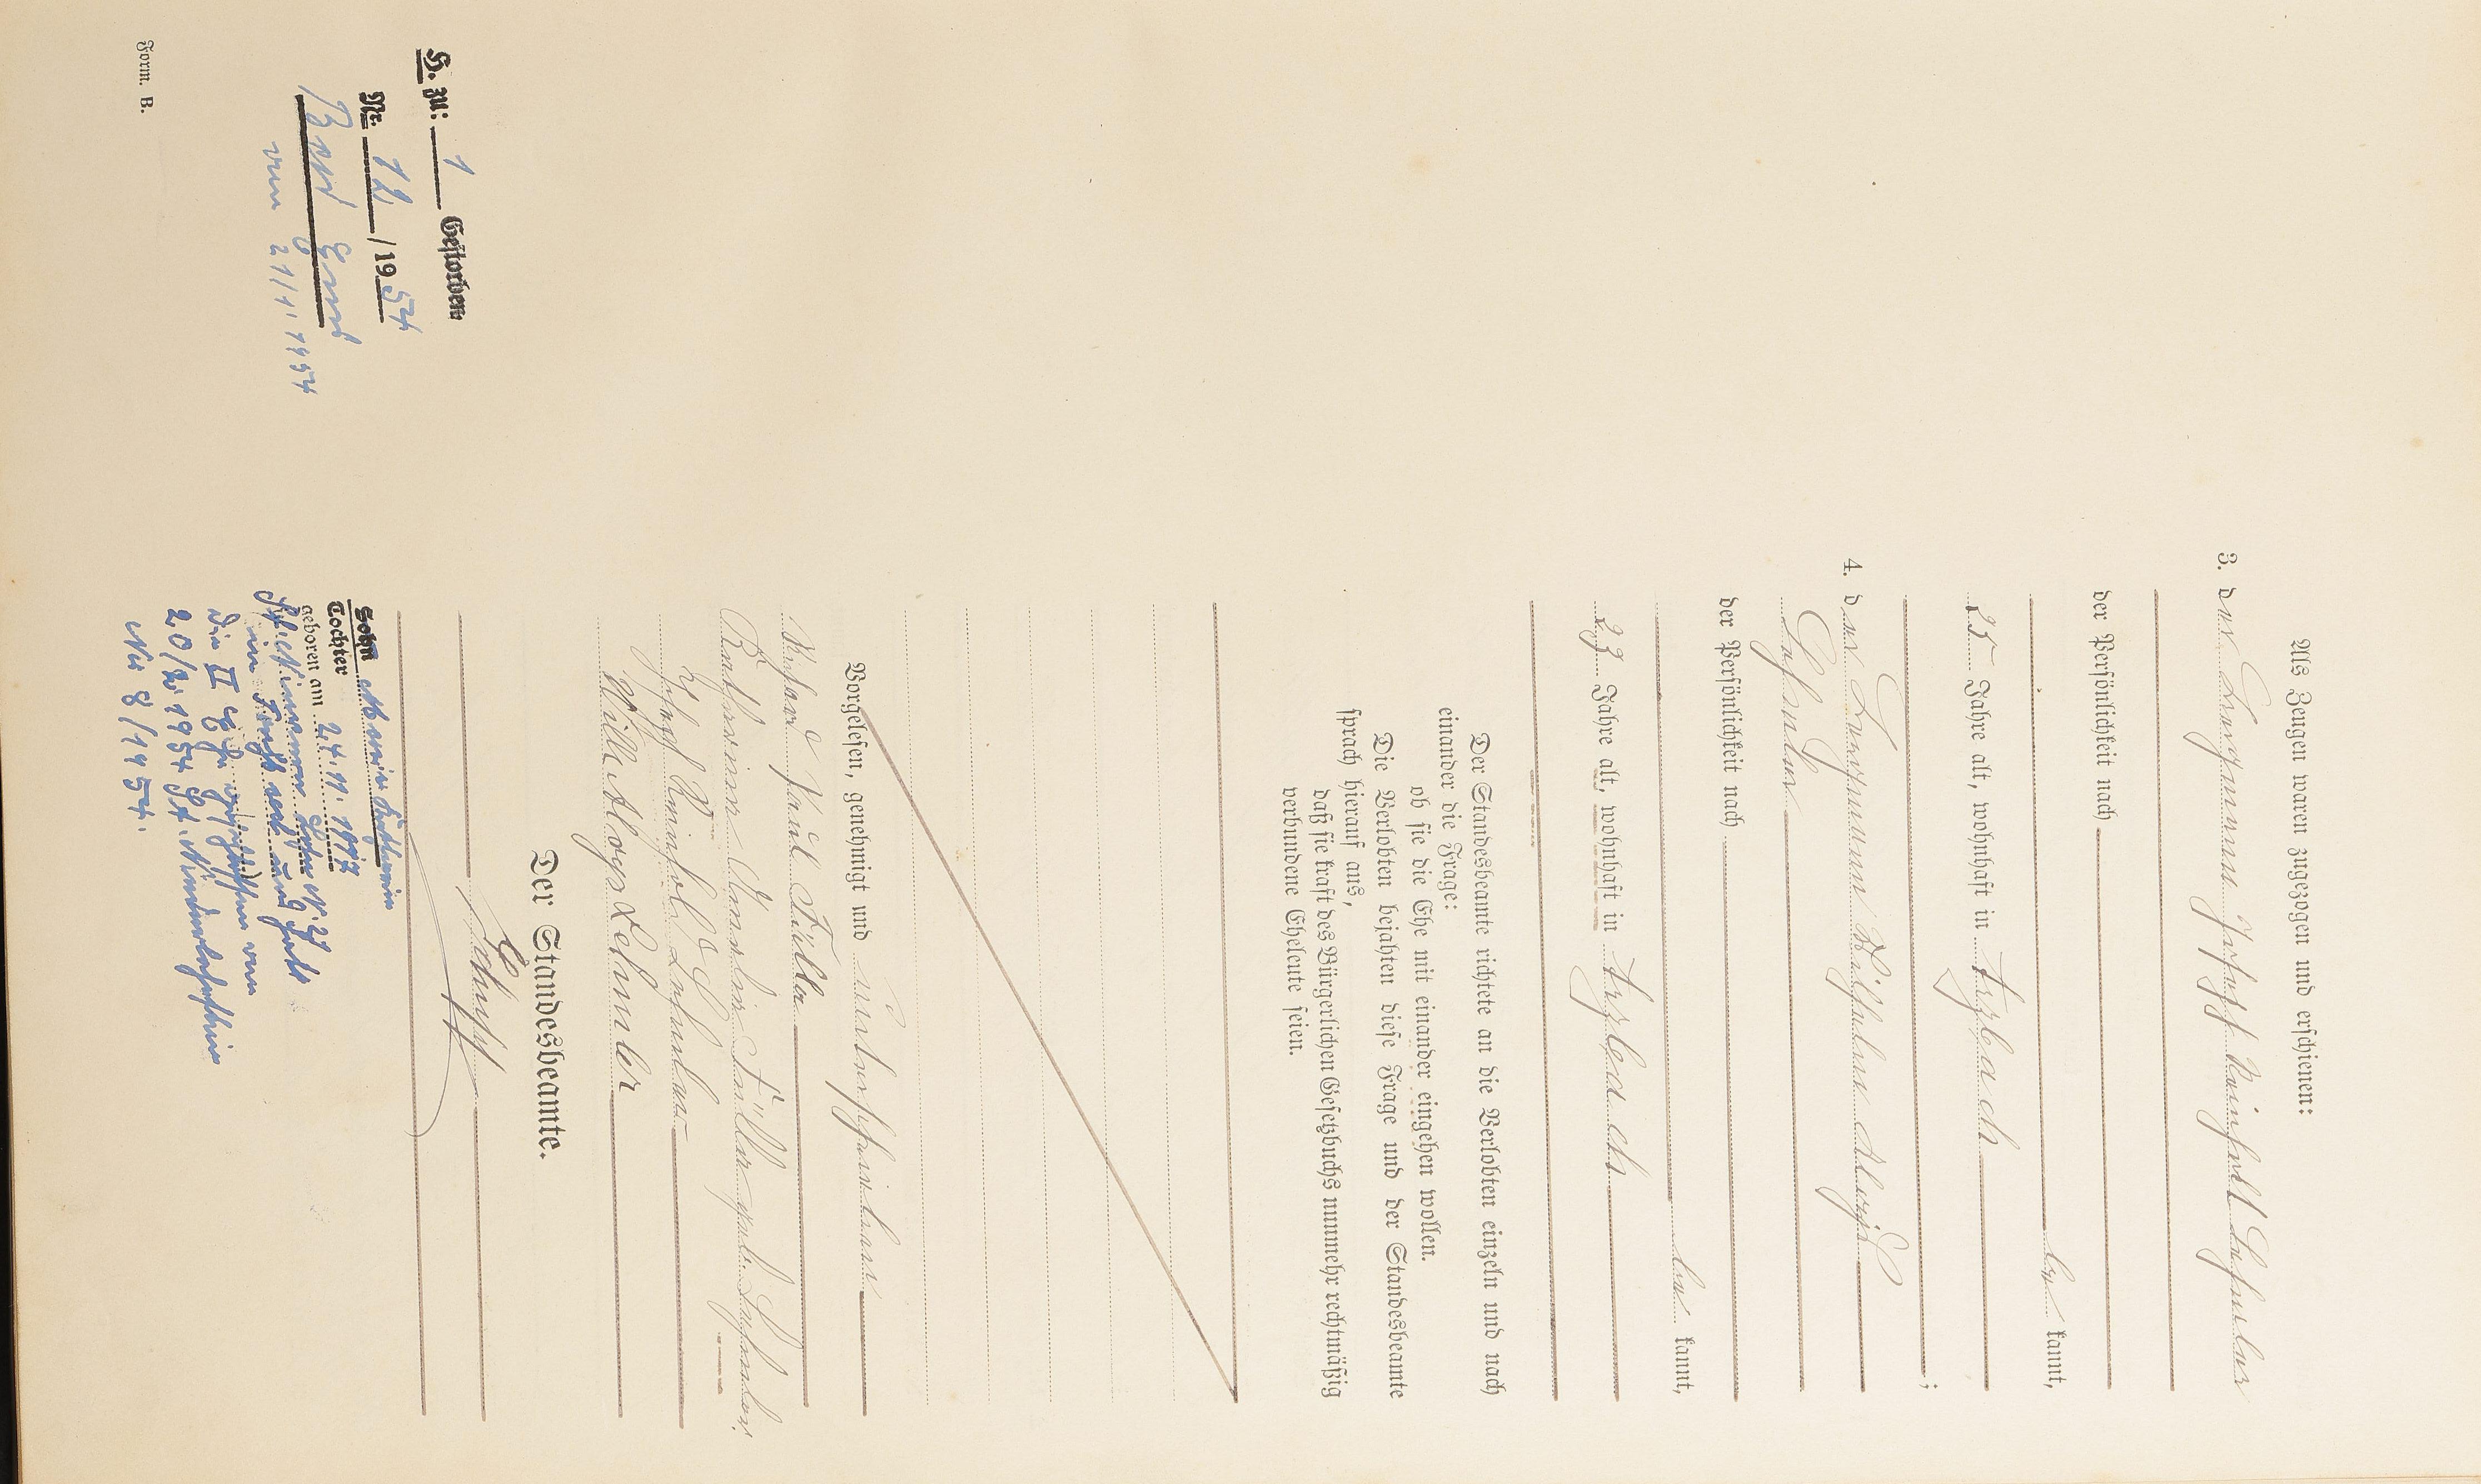 Als Zeugen waren zugezogen und erschienen:
3. der Bergmann Joseph Reinhold Lehmler
der Persönlichkeit nach
be kannt,
25 Jahre alt, wohnhaft in Arzbach
;
4. der Bergmann Wilhelm Aloys
Lehmler
der Persönlichkeit nach
be kannt,
29 Jahre alt, wohnhaft in Arzbach
Der Standesbeamte richtete an die Verlobten einzeln und nach
einander die Frage:
ob sie die Ehe mit einander eingehen wollen.
Die Verlobten bejahten diese Frage und der Standesbeamte
sprach hierauf aus,
daß sie kraft des Bürgerlichen Gesetzbuchs nunmehr rechtmäßig
verbundene Eheleute seien.
Vorgelesen, genehmigt und unterschrieben
Paul Füller
Katharina Füller geb. Lehmler
Joseph Reinhold Lehmler
Wilh. Aloys Lehmler
Der Standesbeamte.
H. zu: 1 Gestorben
Nr. 12 / 1954
vom 21/11 1954
Sohn
Tochter
geboren am
die II Ehe geschlossen vom
20/2. 1954 St.
Nr 8/1954.
Form. B.